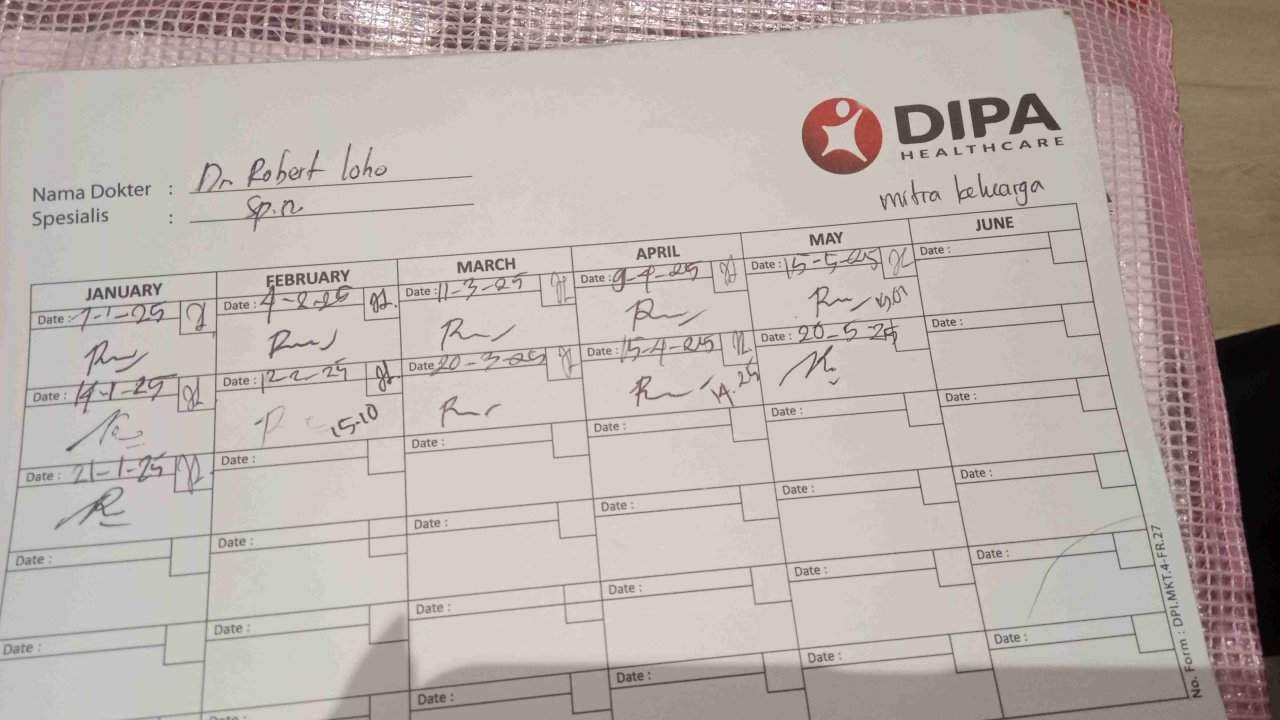 DIPA
HEALTHCARE
Nama Dokter : Dr Robert loho
Spesialis : Sp.n
mitra keluarga
JANUARY FEBRUARY MARCH APRIL MAY JUNE
Date : 7-1-25 Date : 4-2-25 Date : 11-3-25 Date : 9-4-25 Date : 15-5-25 Date :
Date : 14-1-25 Date : 12-2-25 Date : 20-3-25 Date : 15-4-25 Date : 20-5-25 Date :
15-10
Date : 21-1-25 Date : Date : Date : Date : Date :
Date : Date : Date : Date : Date : Date :
Date : Date : Date : Date : Date : Date :
Date : Date : Date : Date : Date :
No. Form : DPI.MKT.4-FR.27